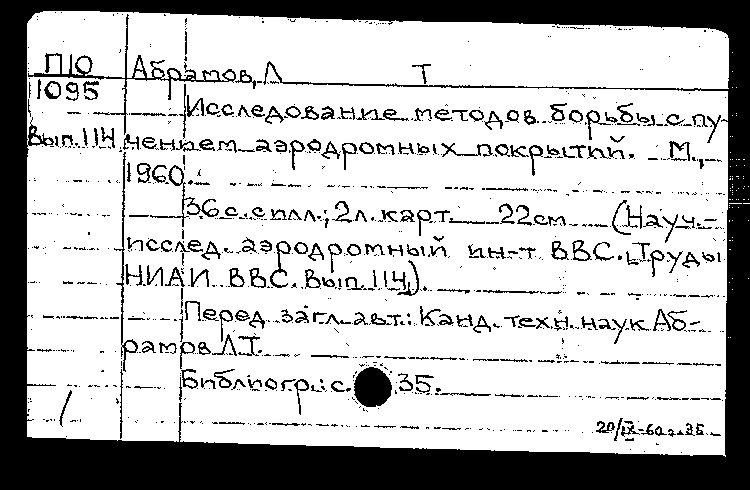 П10 Абрамов, Л Т
1095
Исследование методов борьбы с пу-
Вып. 114 чением аэродромных покрытий. М.,
1960.
36с. с илл.; 2л. карт. 22см (Науч.-
исслед. аэродромный ин-т ВВС. Труды
НИАИ ВВС. Вып. 114).
Перед загл. авт.: Канд. техн. наук Аб-
рамов Л.Т.
Библиогр.: с. 35.
20/IX-60